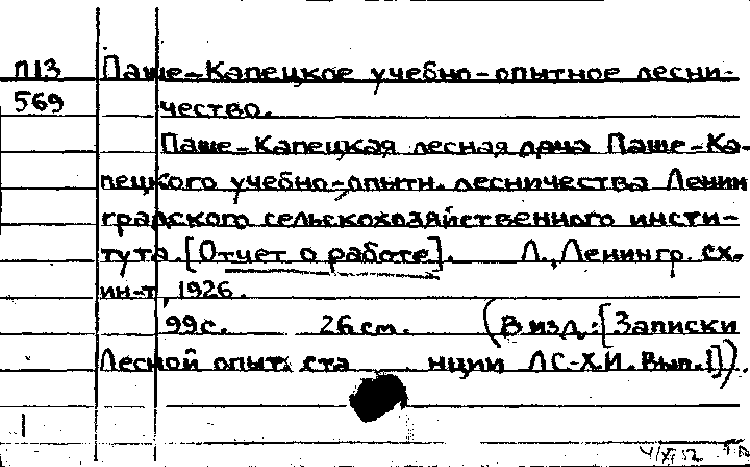 П13 Паше-Капецкое учебно-опытное лесни-
569 чество.
Паше-Капецкая лесная дача Паше-Ка-
пецкого учебно-опытн. лесничества Ленин
градского сельскохозяйственного инсти-
тута. [Отчет о работе]. Л., Ленингр. сх.
ин-т, 1926.
99 с. 26 см. (В изд.: [Записки
Лесной опытн. станции ЛС-Х.И. Вып. I]).